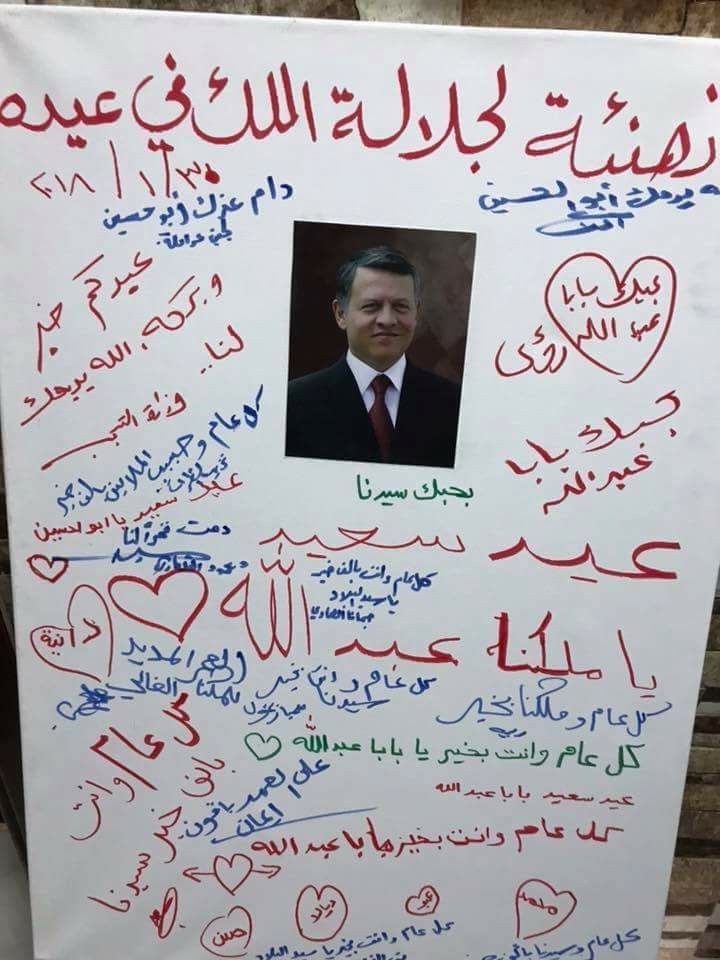 تهنئة لجلالة الملك في عيده
٣٠/١/٢٠١٨
دام عزك أبو حسين
أبو الحسين
عيدكم خير
وبركه الله يديمك
لنا..
بحبك بابا
عبد الله
رؤى
بحبك بابا
كل عام وحبيب الملايين بألف خير
بحبك سيدنا
سعيد يا ابو الحسين
دمت فخراً لنا
عيد سعيد
يا ملكنا عبد الله
كل عام وانت بالف خير
يا سيد البلاد
دانية
العمر المديد
لملكنا الغالي
كل عام وانت بخير
سيدنا
كل عام وملكنا بخير
كل عام وانت بخير يا بابا عبدالله
كل عام وانت
بالف خير سيدنا
عيد سعيد بابا عبدالله
على العهد باقون
كل عام وانت بخير بابا عبد الله
محمد
كل عام وانت بخير يا سيد البلاد
كل عام وسيدنا